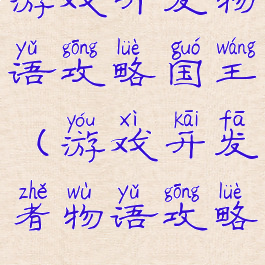 游戏开发物
yǔ gōng lüè guó wáng
语攻略国王
yóu xì kāi fā
(游戏开发
zhě wù yǔ gōng lüè
者物语攻略